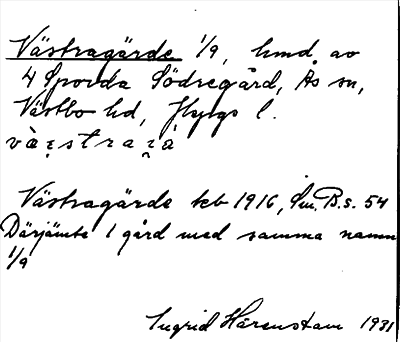 Västragärde 1/9, hmd av
4 Sporda Södregård, Ås sn,
Västbo hd, Jkpgs l.
væ̀straɟá
Västragärde keb 1916, Sm. B. s. 54
Därjämte 1 gård med samma namn
1/9
Ingrid Härenstam 1931